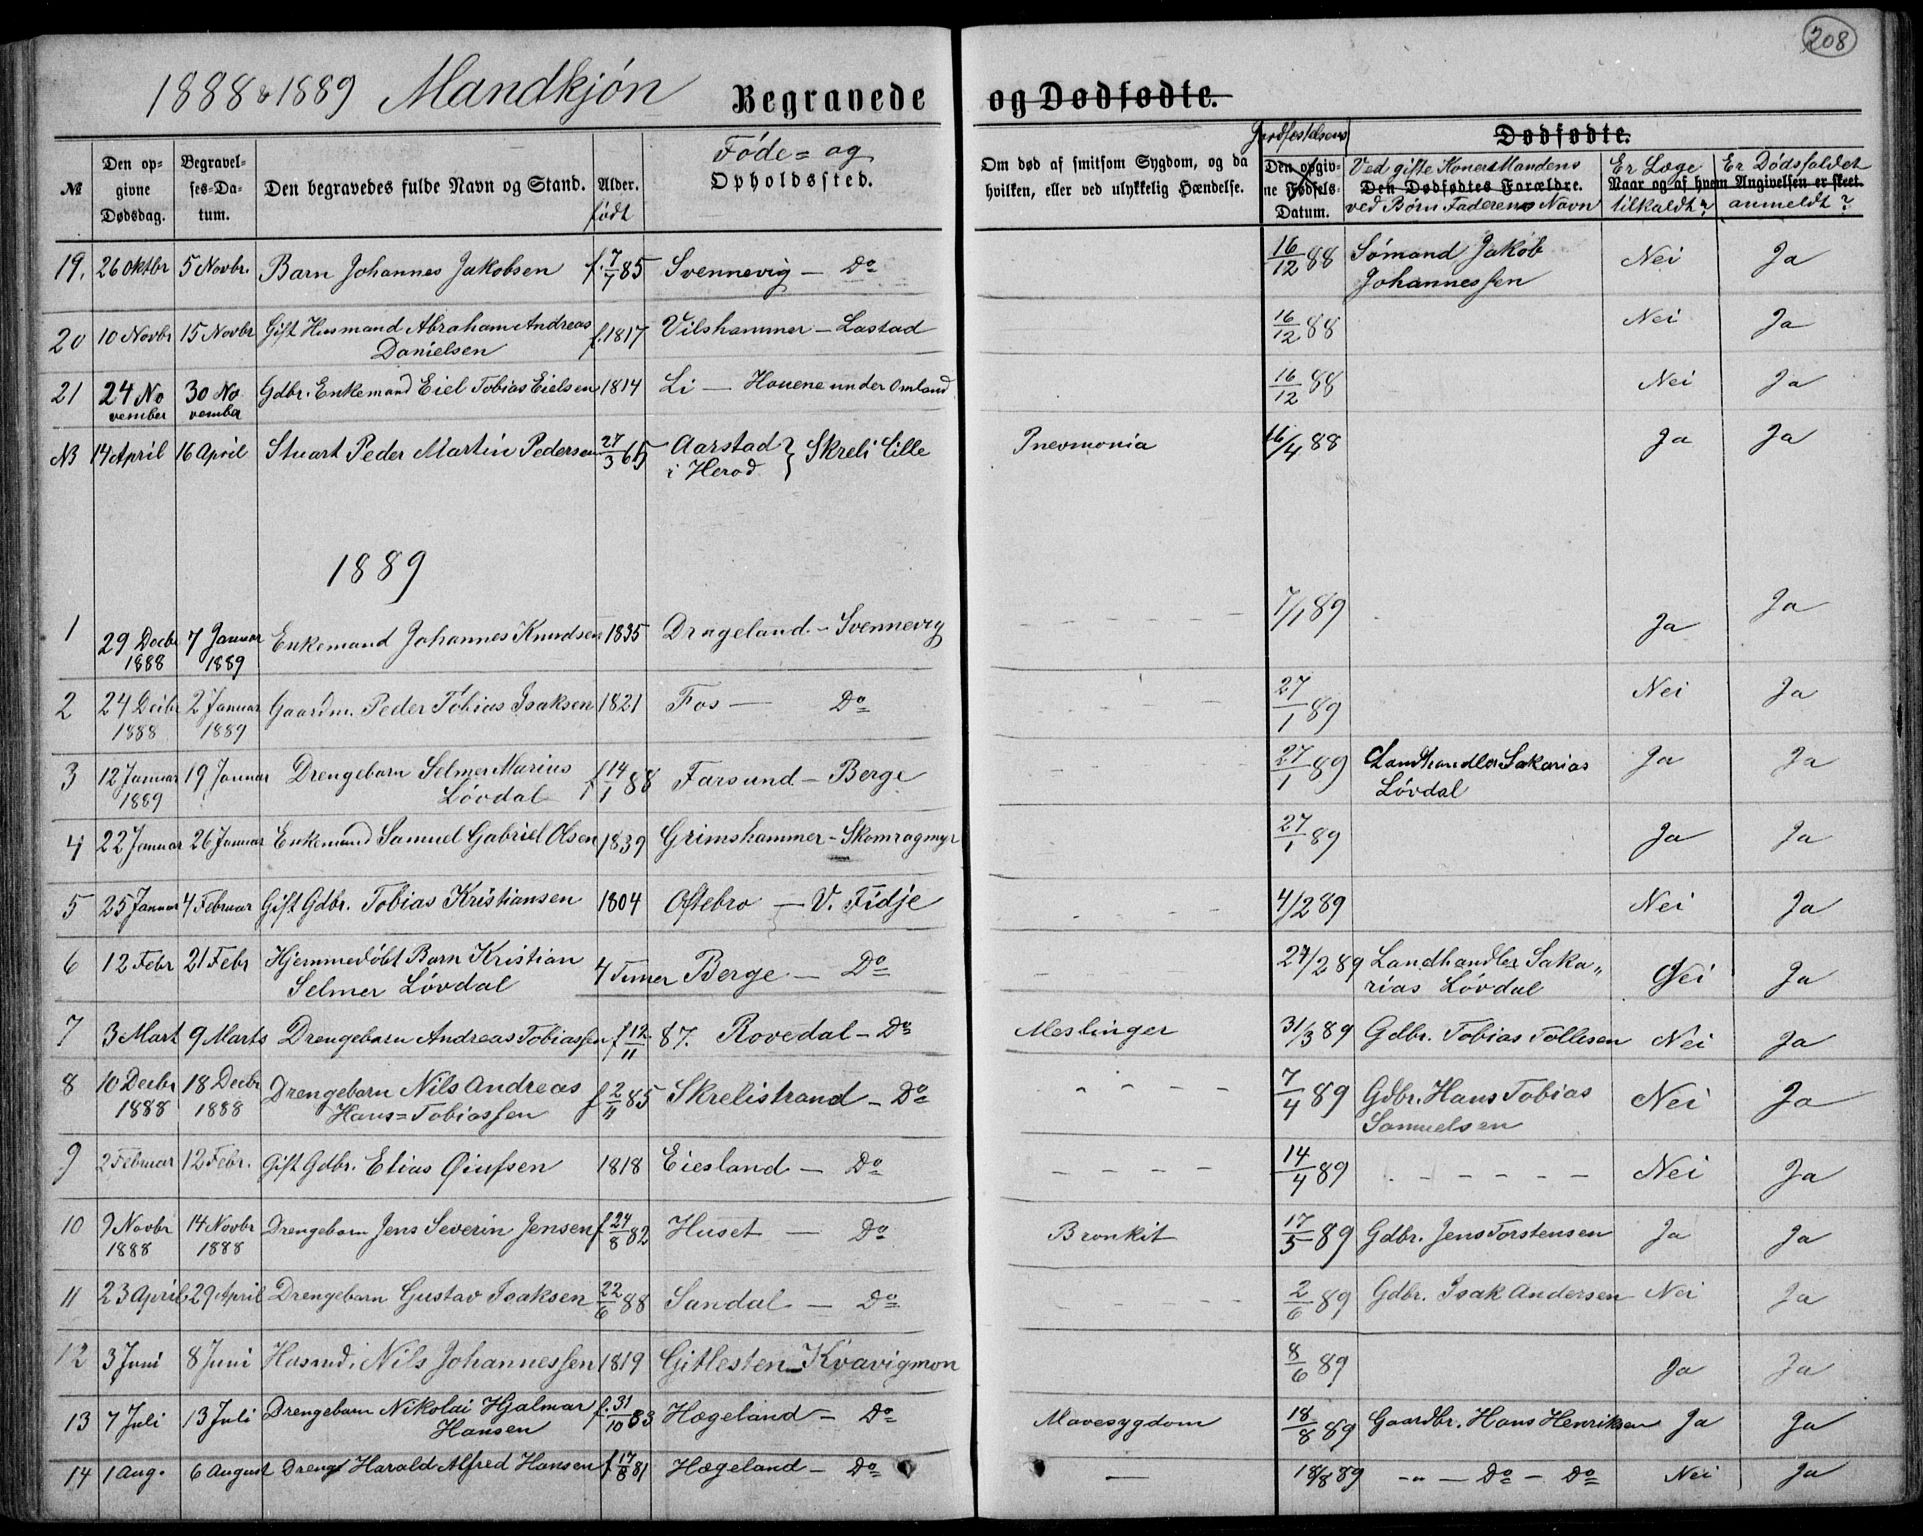 208
1888 & 1889 Mandkjön Begravede og Dødfødte.
№ | Den opgivne Dødsdag. | Begravelses-Datum. | Den begravedes fulde Navn og Stand. | Alder. født | Føde- og Opholdssted. | Om død af smitsom Sygdom, og da hvilken, eller ved ulykkelig Hændelse. | Jordfæstelsens Den opgivne Fødsels-Datum. | Dødfødte. Ved gifte Koner Mandens Den Dødfødtes Forældre. ved Børn Faderens Navn | Naar og af hvem Angivelsen er skeet. Er Læge tilkaldt? | Er Dødsfaldet anmeldt?
19. | 26 Oktbr | 5 Novbr. | Barn Johannes Jakobsen | f. 7/7 85 | Svennevig — Do | | 16/12 88 | Sömand Jakob Johannessen | Nei | Ja
20 | 10 Novbr | 15 Novbr | Gift Husmand Abraham Andreas Danielsen | f. 1817 | Vilshammer — Lastad | | 16/12 88 | | Nei | Ja
21 | 24 November | 30 November | Gdbr. Enkemand Eiel Tobias Eielsen | 1814 | Li — Houene under Omland | | 16/12 88 | | Nei | Ja
NB | 14 April | 16 April | Stuart Peder Martin Pedersen | 27/3 65 | Aarstad i Herod } Skreli lille | Pnevmonia | 16/4 88 | | Ja | Ja
1889
1 | 29 Decbr 1888 | 7 Januar 1889 | Enkemand Johannes Knudsen | 1835 | Drageland. - Svennevig | — — — — | 7/1 89 | | Ja | Ja
2 | 24 Decbr 1888 | 2 Januar 1889 | Gaardm. Peder Tobias Isaksen | 1821 | Fos — Do | — — — — | 27/1 89 | | Nei | Ja
3 | 12 Januar 1889 | 19 Januar | Drengebarn Selmer Marius Lövdal | f 14/1 88 | Farsund — Berge | — — — — | 27/1 89 | Landhandler Sakarias Lövdal | Ja | Ja
4 | 22 Januar | 26 Januar | Enkemand Samuel Gabriel Olsen | 1839 | Grimshammer - Skomragmyr | — — — — | 27/1 89 | | Ja | Ja
5 | 25 Januar | 4 Februar | Gift Gdbr. Tobias Kristiansen | 1804 | Østebro — V. Fidje | - - - - | 4/2 89 | | Nei | Ja
6 | 12 Febr | 21 Febr | Hjemmedöbt Barn Kristian Selmer Lövdal | 4 Timer | Berge — Do | — | 27/2 89 | Landhandler Sakarias Lövdal | Nei | Ja
7 | 3 Mart | 9 Marts | Drengebarn Andreas Tobiassen | f 12/11 87. | Rovedal — Do | Meslinger | 31/3 89 | Gdbr. Tobias Tollisen | Nei | Ja
8 | 10 Decbr 1888 | 18 Decbr 1888 | Drengebarn Nils Andreas Hans=Tobiassen | f 2/4 85 | Skrelistrand — Do | - - - - | 7/4 89 | Gdbr. Hans Tobias Samuelsen | Nei | Ja
9 | 2 Februar | 12 Febr. | Gift Gdbr. Elias Öiufsen | 1818 | Eiesland — Do | - - - - | 14/4 89 | - - - - - | Nei | Ja
10 | 9 Novbr 1888 | 14 Novbr 1888 | Drengebarn Jens Severin Jensen | f 24/8 82 | Huset — Do | Bronkit | 17/5 89 | Gdbr. Jens Torstensen | Ja | Ja
11 | 23 April | 29 April | Drengebarn Gustav Isaksen | 22/6 88 | Sandal — Do | - - - - | 2/6 89 | Gdbr. Isak Andersen | Nei | Ja
12 | 3 Juni | 8 Juni | Husmd. Nils Johannessen | 1819 | Gitlesten — Kvavigmon | | 8/6 89 | | Ja | Ja
13 | 7 Juli | 13 Juli | Drengebarn Nikolai Hjalmar Hansen | f. 31/10 83 | Hægeland — Do | Mavesygdom | 18/8 89 | Gaardbr. Hans Henriksen | Ja | Ja
14 | 1 Aug. | 6 August | Dreng Harald Alfred Hansen | f 17/8 81 | Hægeland — Do | — | 18/8 89 | -"- — Do — Do | Nei | Ja